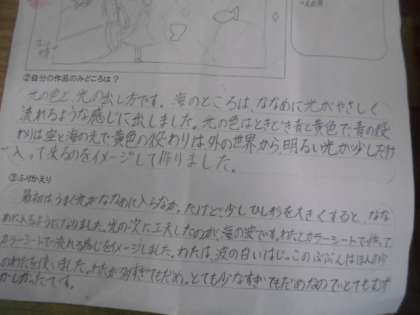 ②自分の作品のみどころは？
光の色と、光の出し方です。海のところは、ななめに光がやさしく
流れるような感じに出しました。光の色はときどき青と黄色で、青の役
わりは空と海の光で黄色の役わりは、外の世界から明るい光が少しだけ
入って来るのをイメージして作りました。
③ふりかえり
最初はうまく光がななめに入らなか、たけど、少しひし形を大きくすると、なな
めに入るようになりました。光の次に工夫したのが、海の波です。わたとカラーシートで作って、
カラーシートで流れる感じをイメージしました。わたは、波の白いはじ。このぶぶんはほんの少
のわたを使いました。わたが多すぎてもだめ。とても少なすぎてもだめなのでとてもむず
かしかったです。